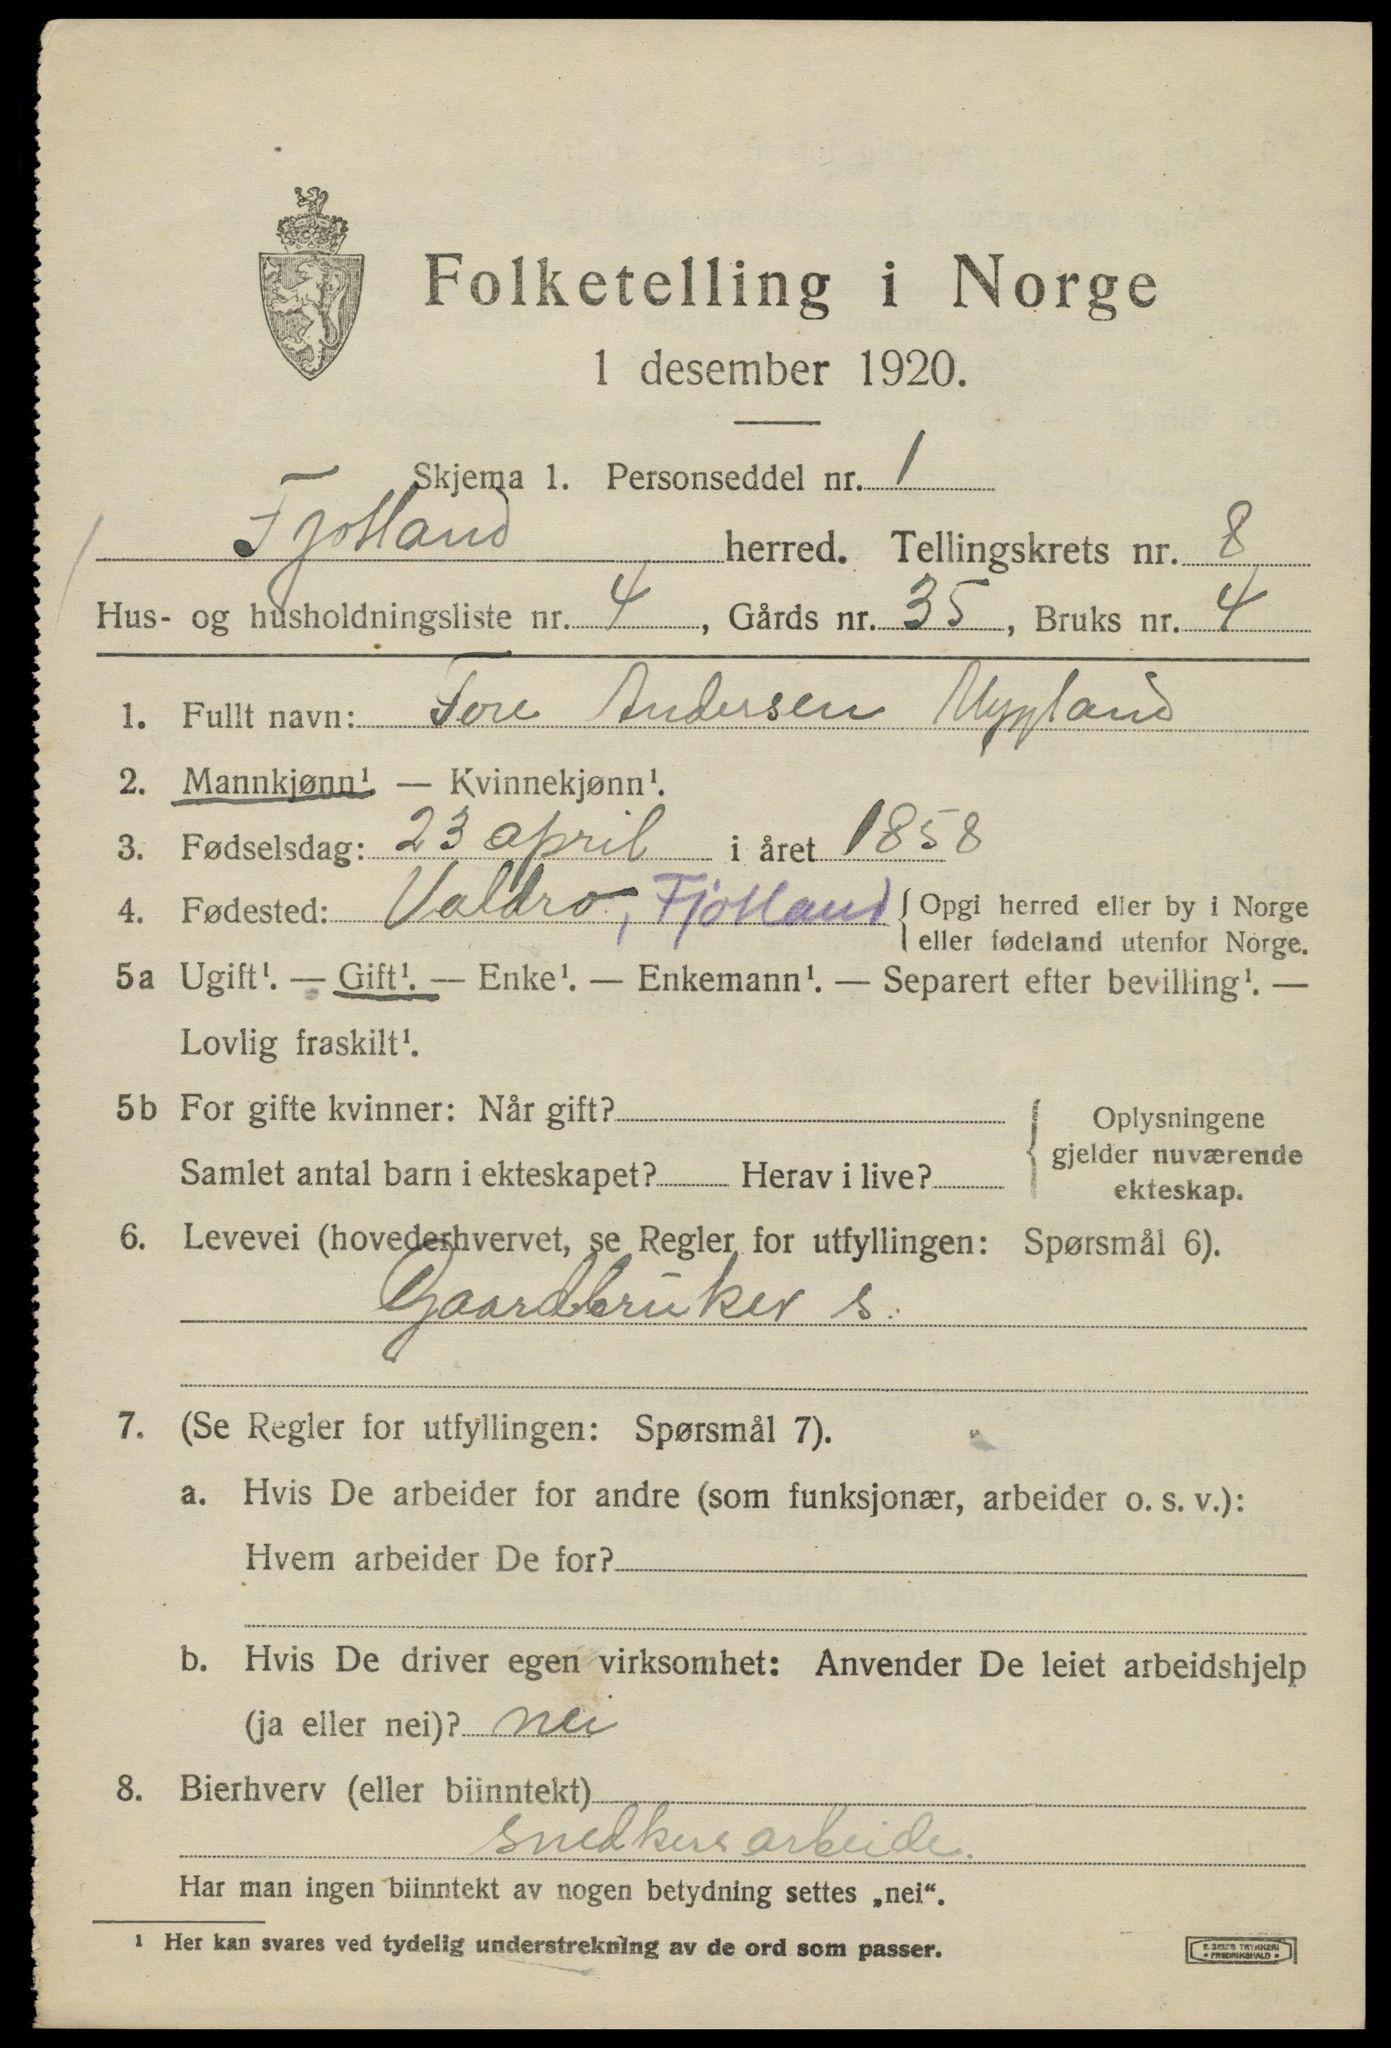 Folketelling i Norge
1 desember 1920.
Skjema 1. Personseddel nr. 1
Fjotland herred. Tellingskrets nr. 8
Hus- og husholdningsliste nr. 4, Gårds nr. 35, Bruks nr. 4
1. Fullt navn: Tore Andersen Mygland
2. Mannkjønn¹ — Kvinnekjønn¹.
3. Fødselsdag: 23 april i året 1858
4. Fødested: Valdro, Fjotland { Opgi herred eller by i Norge
eller fødeland utenfor Norge.
5a Ugift¹. — Gift¹. — Enke¹. — Enkemann¹. — Separert efter bevilling¹. —
Lovlig fraskilt¹.
5b For gifte kvinner: Når gift?
Samlet antal barn i ekteskapet? Herav i live?
Oplysningene
gjelder nuværende
ekteskap.
6. Levevei (hovederhvervet, se Regler for utfyllingen: Spørsmål 6).
Gaardbruker s.
7. (Se Regler for utfyllingen: Spørsmål 7).
a. Hvis De arbeider for andre (som funksjonær, arbeider o. s. v.):
Hvem arbeider De for?
b. Hvis De driver egen virksomhet: Anvender De leiet arbeidshjelp
(ja eller nei)? nei
8. Bierhverv (eller biinntekt)
snedkersarbeide.
Har man ingen biinntekt av nogen betydning settes „nei“.
¹ Her kan svares ved tydelig understrekning av de ord som passer.
E. SEM'S TRYKKERI
• FREDRIKSHALD •